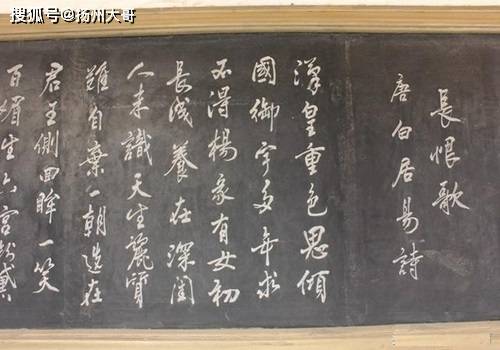 搜狐号@扬州大哥
長恨歌
唐白居易詩
漢皇重色思傾
國御宇多年求
不得楊家有女初
長成養在深閨
人未識天生麗質
難自棄一朝選在
君王側回眸一笑
百媚生六宮粉黛